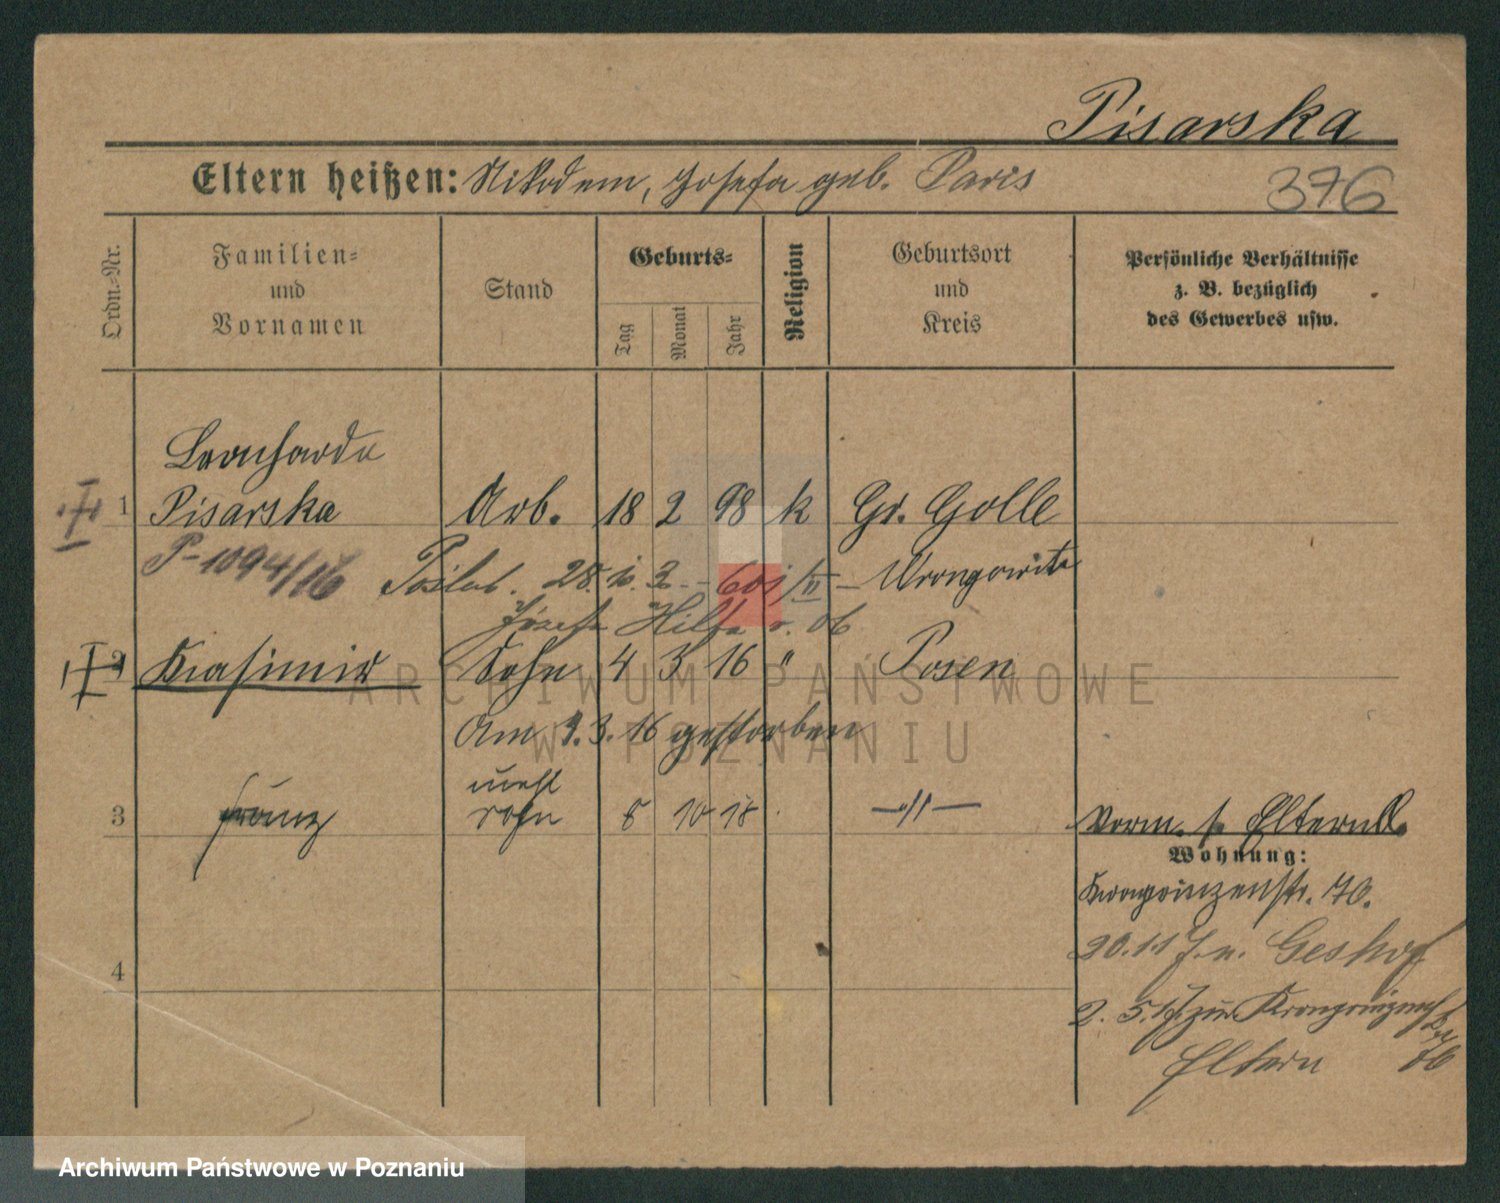 Pisarska
Eltern heißen: Nikodem, Josefa geb. Paris
376
Ordn.-Nr.
Familien-
und
Vornamen
Stand
Geburts-
Tag
Monat
Jahr
Religion
Geburtsort
und
Kreis
Persönliche Verhältnisse
z. B. bezüglich
des Gewerbes usw.
Leonharda
1 Pisarska Arb. 18 2 98 k Gr. Golle
P-1094/16
Wrongowitz
2 Kasimir Sohn 4 3 16 " Posen
Am 9.3.16 gestorben
unehl
3 Franz Sohn 8 10 18 —"—
Vorm. s. Eltern
Wohnung:
Kronprinzenstr. 76.
4
20.11 Geshof
2. 5. zur Kronprinzenstr
Eltern 76
ARCHIWUM PAŃSTWOWE
W POZNANIU
Archiwum Państwowe w Poznaniu